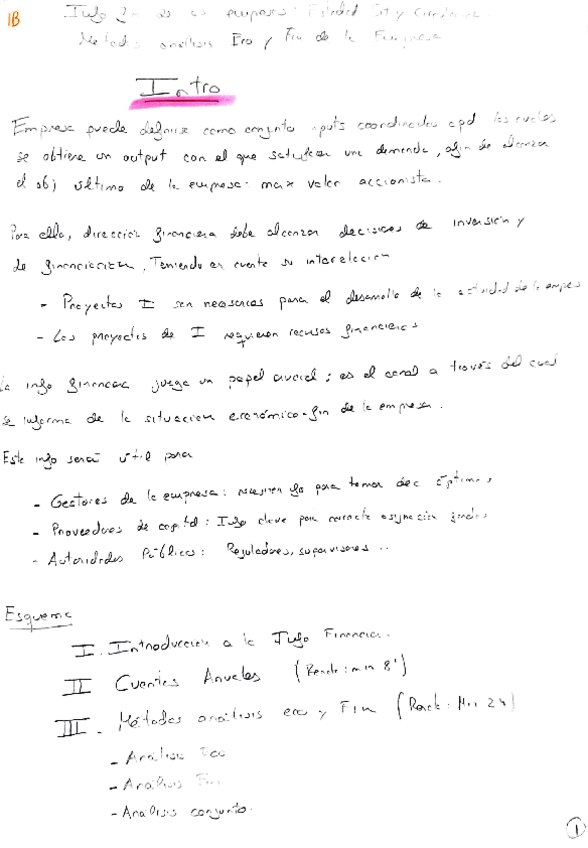 1B
Métodos análisis Eco y Fin de la Empresa
Intro
Empresa puede definirse como conjunto inputs coordinados apd los cuales
se obtiene un output con el que satisfacer una demanda, a fin de alcanzar
el obj último de la empresa: max valor accionista.
Para ello, dirección financiera debe alcanzar decisiones de inversión y
de financiación, Teniendo en cuenta su interrelación
- Proyectos I son necesarios para el desarrollo de la actividad de la empresa
- Los proyectos de I requieren recursos financieros
La info financiera juega un papel crucial; es el canal a través del cual
se informa de la situación económico-fin de la empresa.
Esta info será útil para
- Gestores de la empresa: necesitan para tomar dec óptimas
- Proveedores de capital: Info clave para correcta asignación
- Autoridades Públicas: Reguladores, supervisores ..
Esquema
I. Introducción a la Info Financiera.
II Cuentas Anuales (Renate: min 8')
III. Métodos análisis eco y Fin (Min 24)
- Análisis Eco
- Análisis Fin
- Análisis conjunto.
1